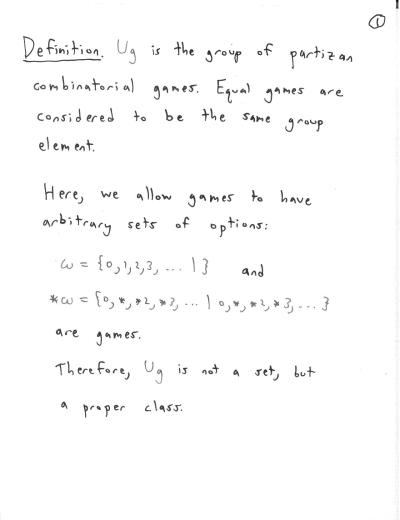 ①
Definition. Ug is the group of partizan
combinatorial games. Equal games are
considered to be the same group
element.
Here, we allow games to have
arbitrary sets of options:
ω = {0,1,2,3, ... | } and
*ω = {0,*,*2,*3, ... | 0,*,*2,*3, ... }
are games.
Therefore, Ug is not a set, but
a proper class.